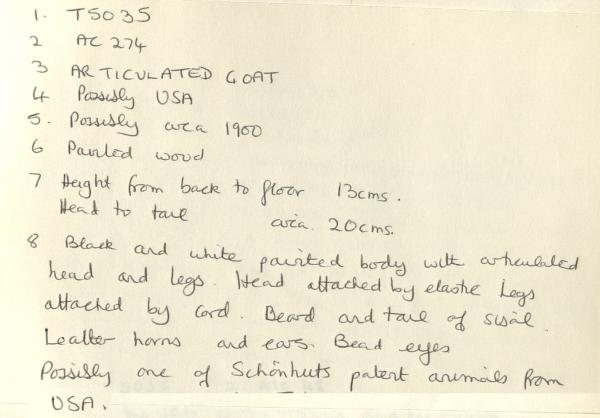 1. TS035
2 AC 274
3 ARTICULATED GOAT
4 Possibly USA
5. Possibly circa 1900
6 Painted wood
7 Height from back to floor 13cms.
Head to tail circa. 20cms.
8 Black and white painted body with articulated
head and legs. Head attached by elastic Legs
attached by cord. Beard and tail of sisal.
Leather horns and ears. Bead eyes
Possibly one of Schönhuts patent animals from
USA.